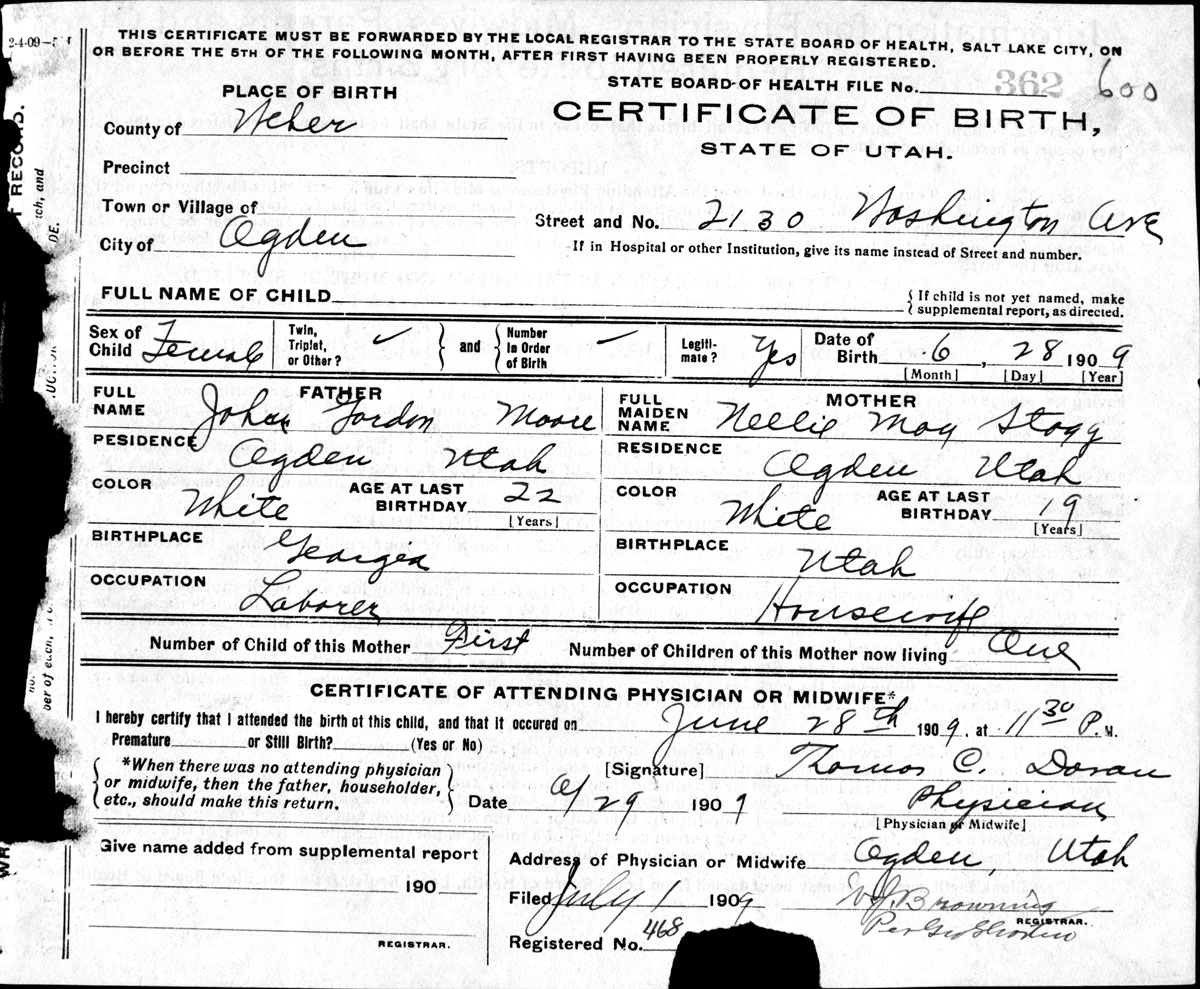 2-4-09-
THIS CERTIFICATE MUST BE FORWARDED BY THE LOCAL REGISTRAR TO THE STATE BOARD OF HEALTH, SALT LAKE CITY, ON
OR BEFORE THE 5TH OF THE FOLLOWING MONTH, AFTER FIRST HAVING BEEN PROPERLY REGISTERED.
STATE BOARD OF HEALTH FILE No. 362 600
PLACE OF BIRTH
CERTIFICATE OF BIRTH,
STATE OF UTAH.
County of Weber
Precinct
Town or Village of
Street and No. 2130 Washington Ave
City of Ogden
If in Hospital or other Institution, give its name instead of Street and number.
FULL NAME OF CHILD
If child is not yet named, make
supplemental report, as directed.
Sex of Child Female
Twin, Triplet, or Other? ✓
and
Number in Order of Birth ✓
Legiti-mate? Yes
Date of Birth 6, 28 1909
[Month] [Day] [Year]
FATHER
FULL NAME John Gordon Moore
MOTHER
FULL MAIDEN NAME Nellie May Stagg
PESIDENCE Ogden Utah
RESIDENCE Ogden Utah
COLOR White AGE AT LAST BIRTHDAY 22 [Years]
COLOR White AGE AT LAST BIRTHDAY 19 [Years]
BIRTHPLACE Georgea
BIRTHPLACE Utah
OCCUPATION Laborer
OCCUPATION Housewife
Number of Child of this Mother First
Number of Children of this Mother now living One
CERTIFICATE OF ATTENDING PHYSICIAN OR MIDWIFE*
I hereby certify that I attended the birth of this child, and that it occured on June 28th 1909, at 11 30 P. M.
Premature or Still Birth? (Yes or No)
*When there was no attending physician
or midwife, then the father, householder,
etc., should make this return.
[Signature] Thomas C. Doran
Date 6/29 1909
Physician
[Physician or Midwife]
Give name added from supplemental report
, 190
REGISTRAR.
Address of Physician or Midwife Ogden, Utah
Filed July 1 1909
Browning
REGISTRAR.
Per Geo
Registered No. 468